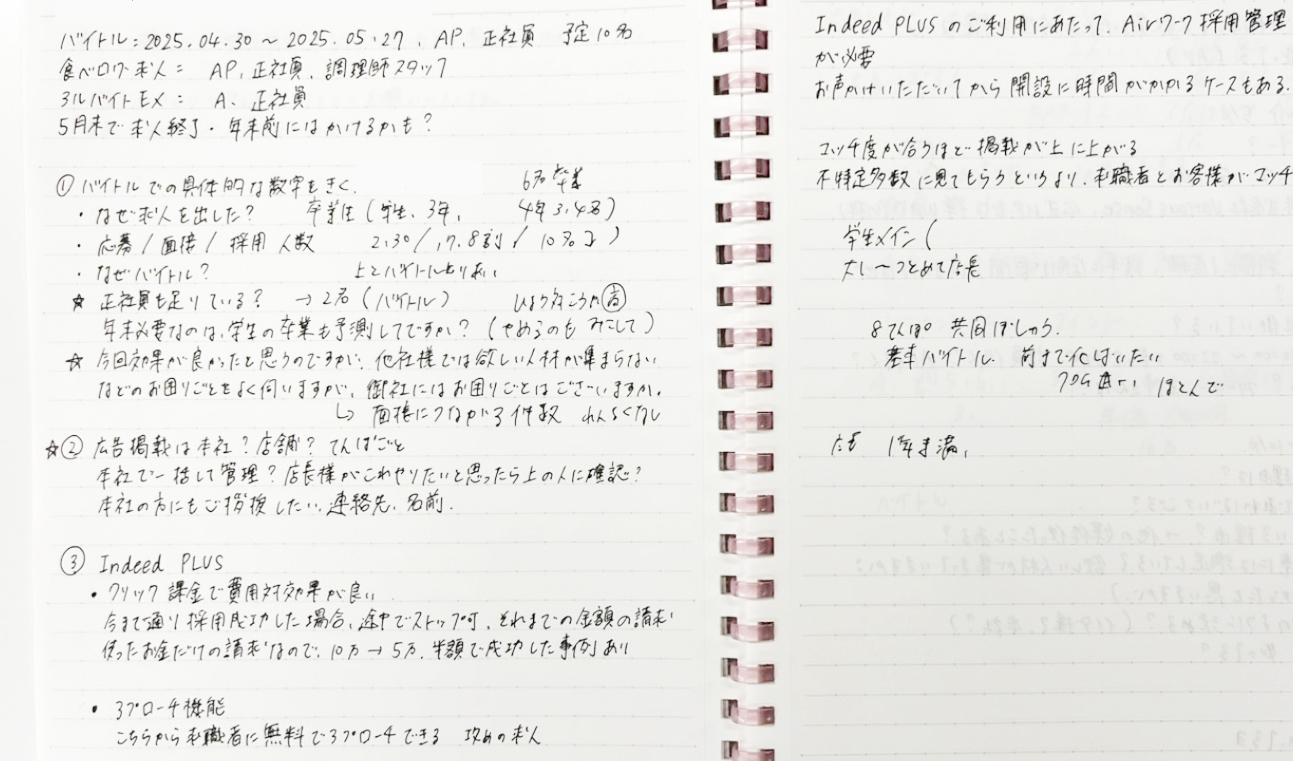 バイトル:2025.04.30 ~ 2025.05.27 、AP、正社員 予定10名
食べログ求人: AP、正社員、調理師スタッフ
アルバイトEX: A、正社員
5月末で求人終了・年末前にはかけるかも?
① バイトルでの具体的な数字をきく。
6名卒業
・なぜ求人を出した? 卒業生(学生、3年、 4年3.4名)
・応募/面接/採用人数 2.30/17.8割/10名
・なぜバイトル?
☆ 正社員も足りている? → 2名(バイトル) 高
年末必要なのは、学生の卒業も予測してですか?(やめるのも みこして)
☆ 今回効果が良かったと思うのですが、他社様では欲しい人材が集まらない
などのお困りごとをよく伺いますが、御社にはお困りごとはございますか。
↳ 面接につながる件数 れんらくなし
☆② 広告掲載は本社?店舗? てんぽごと
本社で一括して管理?店長様がこれやりたいと思ったら上の人に確認?
本社の方にもご挨拶したい、連絡先、名前.
③ Indeed PLUS
・クリック課金で費用対効果が良い
今まで通り採用成功した場合、途中でストップ可、それまでの金額の請求
使ったお金だけの請求なので、10万→5万、半額で成功した事例あり
・アプローチ機能
こちらから求職者に無料でアプローチできる 攻めの求人
Indeed PLUSのご利用にあたって、Airワーク採用管理
が必要
お声がけいただいてから開設に時間がかかるケースもある.
マッチ度が合うほど掲載が上に上がる
不特定多数に見てもらうというより、求職者とお客様がマッチ
学生メイン(
店長
8てんぽ 共同ぼしゅう.
基本バイトル
ほとんど
1年未満、